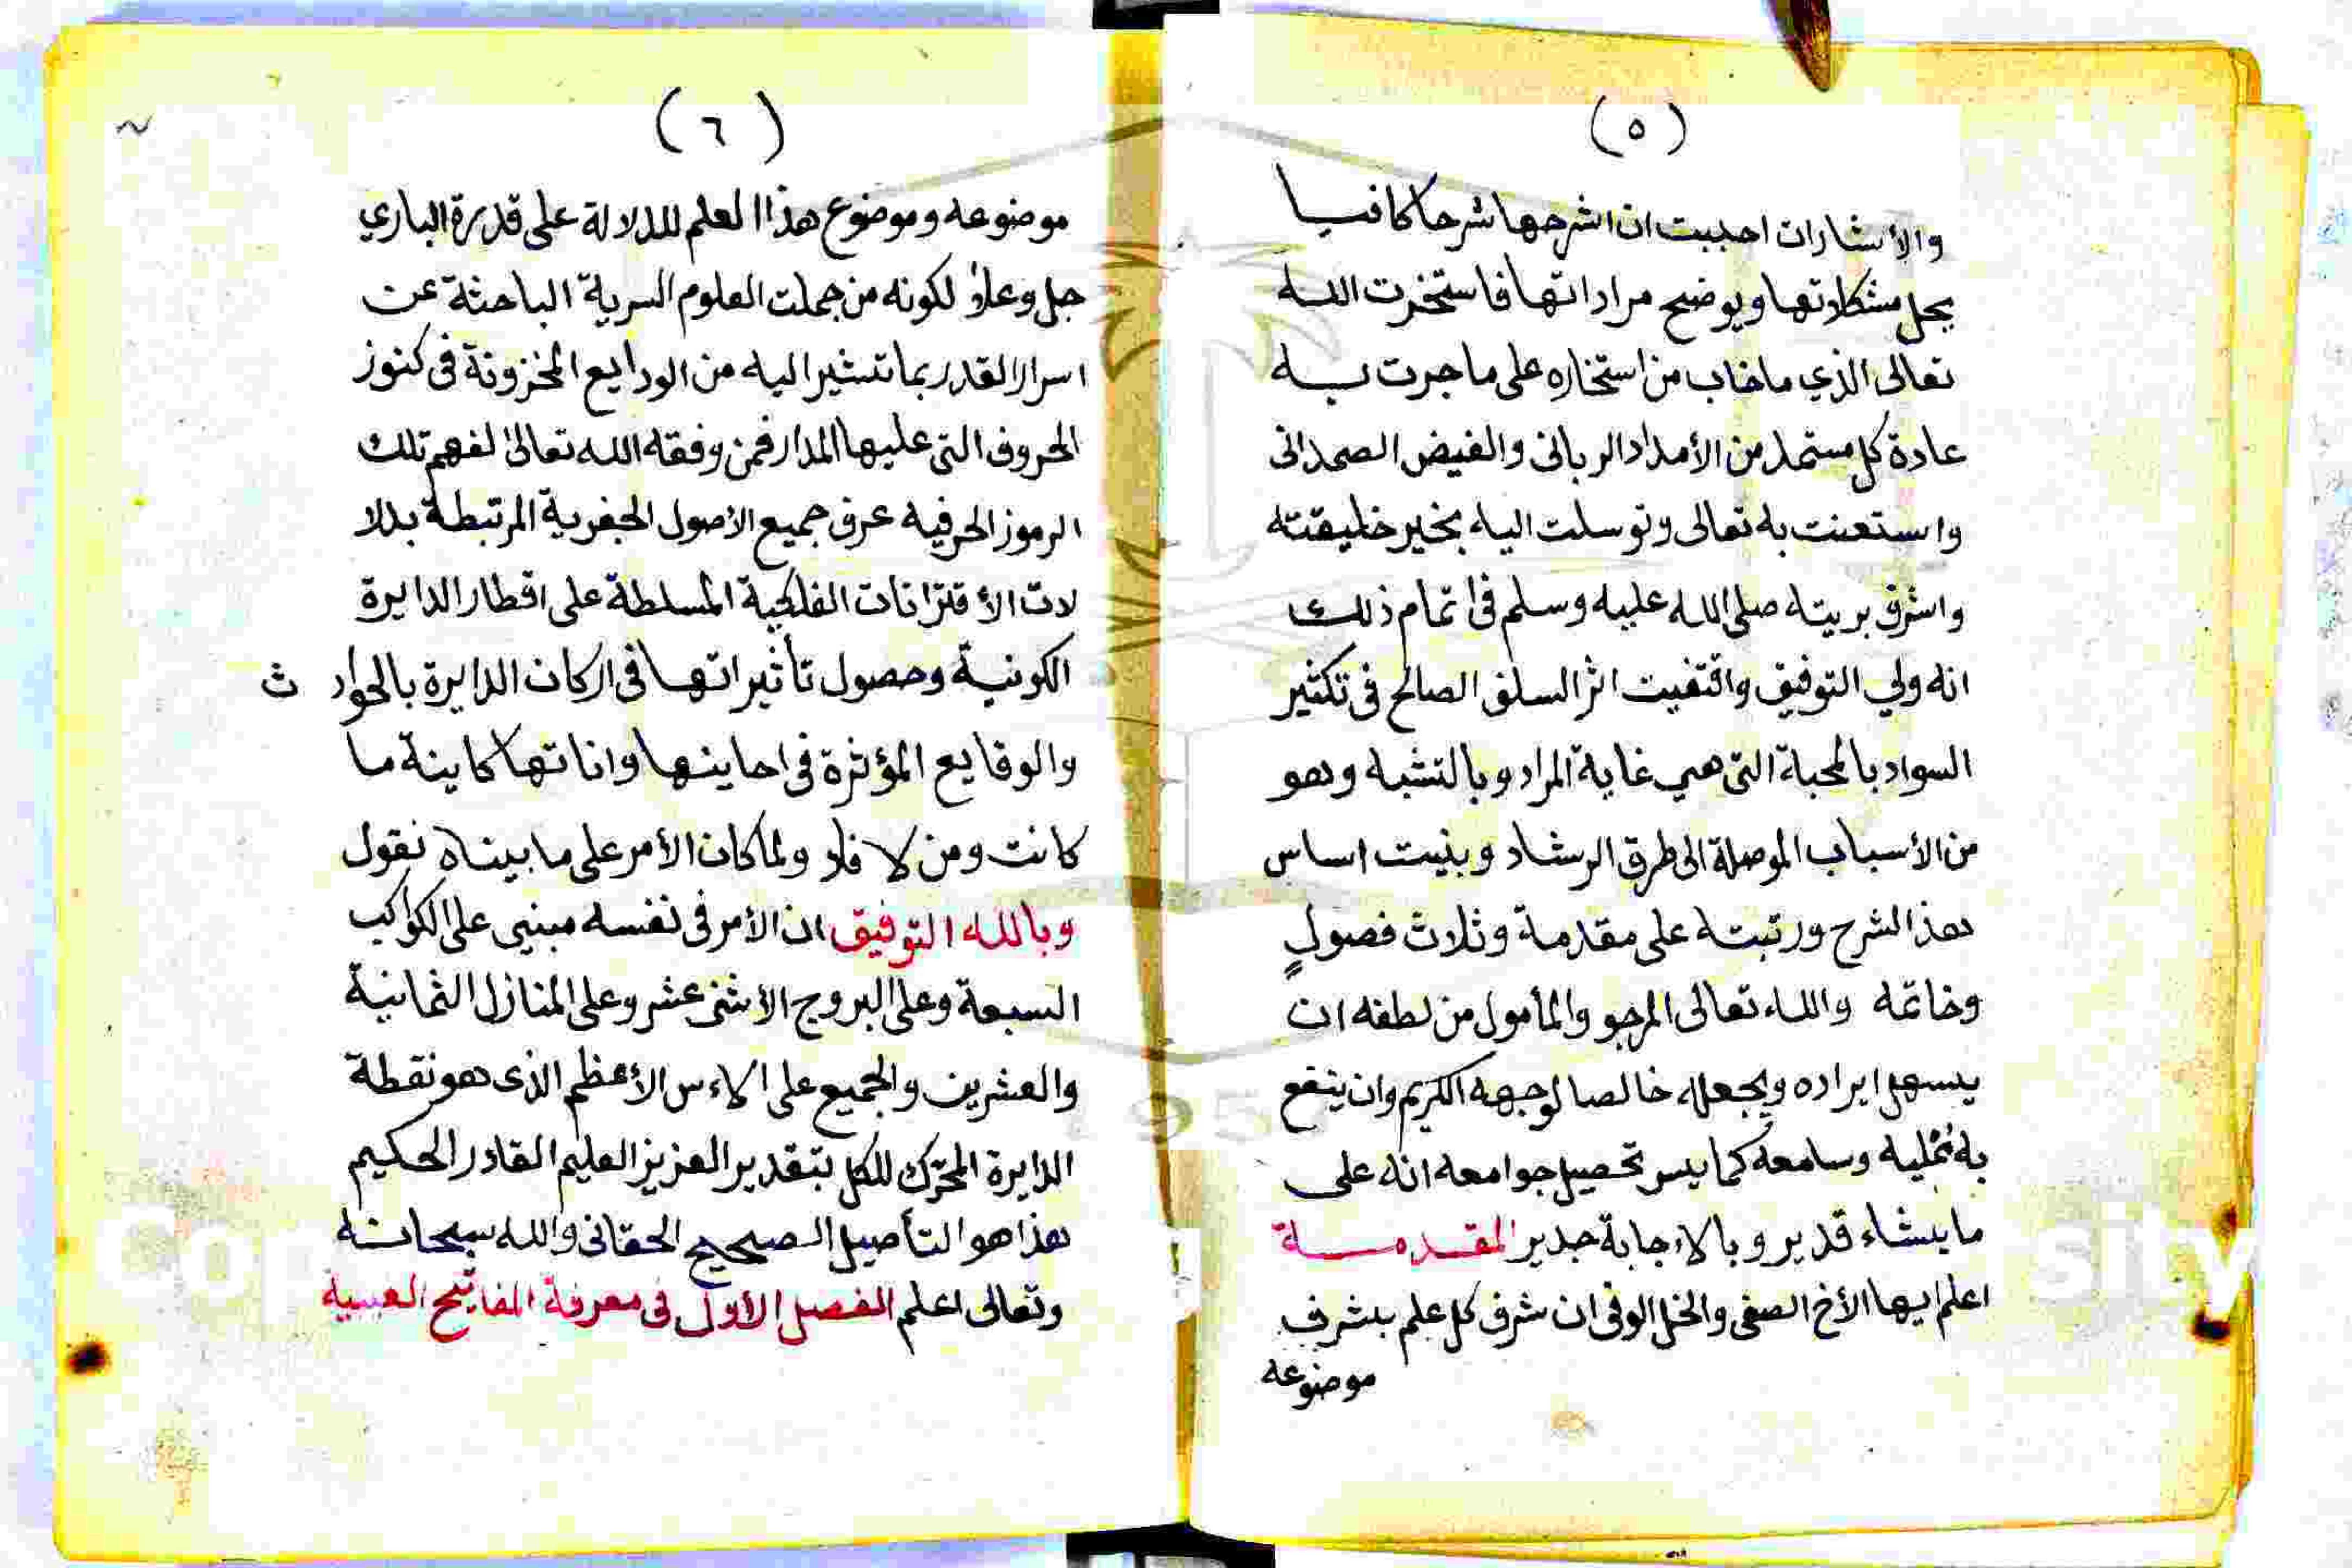 (٥)
والأشارات احببت ان اشرحها شرحا كافيا
يحل مشكلاتها ويوضح مراداتها فاستخرت الله
تعالى الذي ما خاب من استخاره على ما جرت به
عادة كل مستمد من الأمداد الرباني والفيض الصمداني
واستعنت به تعالى وتوسلت اليه بخير خليقته
واشرف بريته صلى الله عليه وسلم في اتمام ذلك
انه ولي التوفيق واقتفيت اثر السلف الصالح في تكثير
السواد بالمحبة التي هي غاية المراد وبالتشبه وهو
من الأسباب الموصلة الى طرق الرشاد وبنيت اساس
هذا الشرح ورتبته على مقدمة وثلاث فصولٍ
وخاتمه والله تعالى المرجو والمأمول من لطفه ان
يسهل ايراده ويجعله خالصا لوجهه الكريم وان ينفع
به ممليه وسامعه كما يسر تحصيل جوامعه انه على
ما يشاء قدير وبالاءجابة جدير المقدمة
اعلم ايها الأخ الصفى والخل الوفى ان شرف كل علم بشرف
موضوعه
(٦)
موضوعه وموضوع هذا العلم للدلالة على قدرة الباري
جل وعلا لكونه من جملت العلوم السرية الباحثة عن
اسرار القدر بما تشير اليه من الودايع المخزونة في كنوز
الحروف التي عليها المدار فمن وفقه الله تعالى لفهم تلك
الرموز الحرفيه عرف جميع الأصول الجفرية المرتبطة بدلا
لات الأقترانات الفلكية المسلطة على اقطار الدايرة
الكونية وحصول تأثيراتها في اركان الدايرة بالحواد ث
والوقايع المؤثرة في احاينها واناتها كاينة ما
كانت ومن لا فلا ولما كان الأمر على ما بيناه نقول
وبالله التوفيق ان الأمر في نفسه مبني على الكواكب
السبعة وعلى البروج الأثنى عشر وعلى المنازل الثمانية
والعشرين والجميع على الاءس الأعظم الذى هو نقطة
الدايرة المحرك للكل بتقدير العزيز العليم القادر الحكيم
هذا هو التأصيل الصحيح الحقانى والله سبحانه
وتعالى اعلم الفصل الأول في معرفة المفاتيح